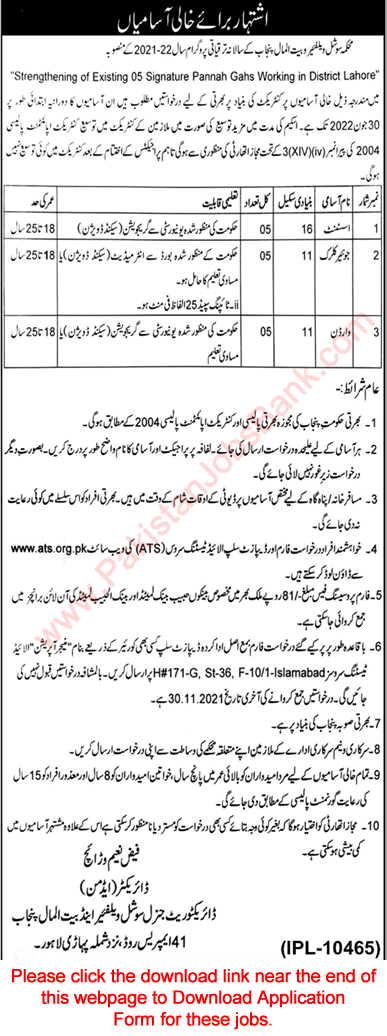 اشتہار برائے خالی آسامیاں
محکمہ سوشل ویلفیئر و بیت المال پنجاب کے سالانہ ترقیاتی پروگرام سال 22-2021 کے منصوبہ
"Strengthening of Existing 05 Signature Pannah Gahs Working in District Lahore"
میں مندرجہ ذیل خالی آسامیوں پر کنٹریکٹ کی بنیاد پر بھرتی کے لیے درخواستیں مطلوب ہیں ان آسامیوں کا دورانیہ ابتدائی طور پر
30 جون 2022 تک ہے۔ اسکیم کی مدت میں مزید توسیع کی صورت میں ملازمین کے کنٹریکٹ میں توسیع کنٹریکٹ اپائنٹمنٹ پالیسی
2004 کی پیرا نمبر (iv)(XIV)3 کے تحت مجاز اتھارٹی کی منظوری سے ہوگی تاہم پراجیکٹس کے اختتام کے بعد کنٹریکٹ میں کوئی توسیع نہیں
ہوگی۔
نمبر شمار نام آسامی بنیادی سکیل کل تعداد تعلیمی قابلیت عمر کی حد
1 اسسٹنٹ 16 05 حکومت کی منظور شدہ یونیورسٹی سے گریجویشن (سیکنڈ ڈویژن) 18 تا 25 سال
2 جونیئر کلرک 11 05 حکومت کے منظور شدہ بورڈ سے انٹرمیڈیٹ (سیکنڈ ڈویژن) یا 18 تا 25 سال
مساوی تعلیم کا حامل ہو۔
ii۔ ٹائپنگ سپیڈ 25 الفاظ فی منٹ ہو۔
3 وارڈن 11 05 حکومت کی منظور شدہ یونیورسٹی سے گریجویشن (سیکنڈ ڈویژن) یا 18 تا 25 سال
مساوی تعلیم
عام شرائط:-
1- بھرتی حکومت پنجاب کی مجوزہ بھرتی پالیسی اور کنٹریکٹ اپائنٹمنٹ پالیسی 2004 کے مطابق ہوگی۔
2- ہر آسامی کے لیے علیحدہ درخواست ارسال کی جائے۔ لفافہ پر پراجیکٹ اور آسامی کا نام واضح طور پر درج کریں۔ بصورت دیگر
درخواست زیر غور نہیں لائی جائے گی۔
3- مسافر خانہ/پناہ گاہ کے لیے مختص آسامیوں پر ڈیوٹی کے اوقات شام کے وقت میں ہیں۔ بھرتی افراد کو اس سلسلے میں کوئی رعایت
نہ دی جائے گی۔
4- خواہشمند افراد درخواست فارم اور ڈیپازٹ سلپ الائیڈ ٹیسٹنگ سروس (ATS) کی ویب سائٹ www.ats.org.pk
سے ڈاؤن لوڈ کر سکتے ہیں۔
5- فارم پروسیسنگ فیس مبلغ -/81 روپے ملک بھر میں مخصوص بینکوں حبیب بینک لمیٹڈ اور بینک الحبیب لمیٹڈ کی آن لائن برانچز میں
جمع کروائی جا سکتی ہے۔
6- باقاعدہ طور پر پر کیے گئے درخواست فارم بمع اصل ادا کردہ ڈیپازٹ سلپ کسی بھی کورئیر کے ذریعے بنام "مینجر آپریشن" الائیڈ
ٹیسٹنگ سروسز H#171-G, St-36, F-10/1-Islamabad پر ارسال کریں۔ بالمشافہ درخواستیں قبول نہیں کی
جائیں گی۔ درخواستیں جمع کروانے کی آخری تاریخ 30.11.2021 ہے۔
7- بھرتی صوبہ پنجاب کی بنیاد پر ہے۔
8- سرکاری و نیم سرکاری ادارے کے ملازمین اپنے متعلقہ محکمے کی وساطت سے اپنی درخواست ارسال کریں۔
9- تمام خالی آسامیوں کے لیے مرد امیدواران کو بالائی عمر میں پانچ سال، خواتین امیدواران کو 8 سال اور معذور افراد کو 15 سال
کی رعایت گورنمنٹ پالیسی کے مطابق دی جائے گی۔
10- مجاز اتھارٹی کو اختیار ہوگا کہ بغیر کوئی وجہ بتائے کسی بھی درخواست کو مسترد یا نا منظور کر سکتی ہے اس کے علاوہ مشتہر آسامیوں میں
کمی بیشی ہو سکتی ہے۔
فیض نعیم وڑائچ
ڈائریکٹر (ایڈمن)
ڈائریکٹوریٹ جنرل سوشل ویلفیئر اینڈ بیت المال پنجاب
41 ایمپریس روڈ، نزد شملہ پہاڑی لاہور۔
(IPL-10465)
www.PakistanJobsBank.com
Please click the download link near the end of
this webpage to Download Application
Form for these jobs.